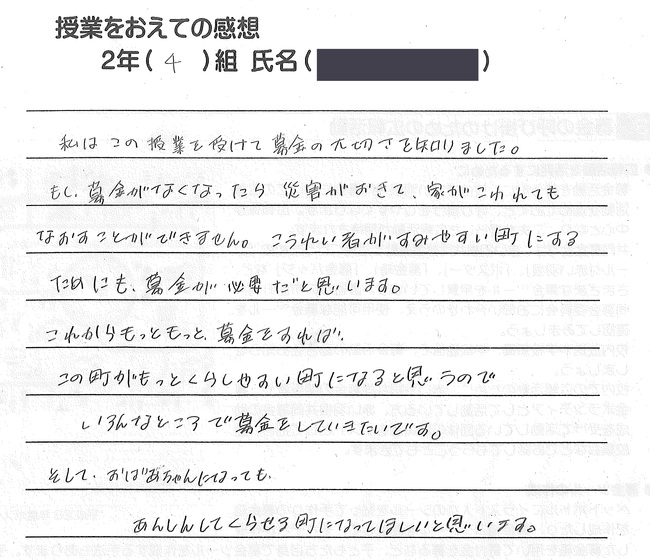 授業をおえての感想
2年( 4 )組 氏名( )
私はこの授業を受けて募金の大切さを知りました。
もし、募金がなくなったら災害がおきて、家がこわれても
なおすことができません。こうれい者がすみやすい町にする
ためにも、募金が必要だと思います。
これからもっともっと、募金をすれば、
この町がもっとくらしやすい町になると思うので
いろんなところで募金をしていきたいです。
そして、おばあちゃんになっても、
あんしんしてくらせる町になってほしいと思います。